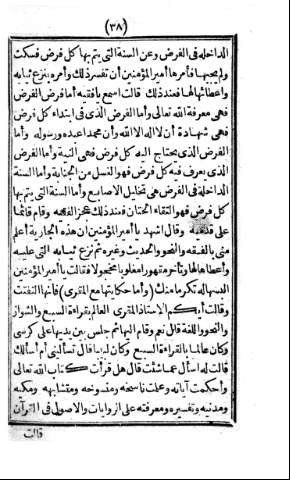 (٣٨)
الداخلة فى الفرض وعن السنة التى يتم بها كل فرض فسكت
ولم يجبها فأمرها أمير المؤمنين أن تفسر ذلك وأمره بنزع ثيابه
واعطائها لها فعند ذلك قالت اسمع يا فقيه أما فرض الفرض
فهى معرفة الله تعالى وأما الفرض الذى فى ابتداء كل فرض
فهى شهادة أن لا اله الا الله وأن محمدا عبده ورسوله وأما
الفرض الذى يحتاج اليه كل فرض فهى النية وأما الفرض
الذى يعرف فيه كل فرض فهو الغسل من الجنابة وأما السنة
الداخلة فى الفرض هى تخليل الاصابع وأما السنة التى يتم بها
كل فرض فهو التقاء الختان فعند ذلك عجز الفقيه وقام قائما
على قدميه وقال اشهد يا أمير المؤمنين أن هذه الجارية أعلم
منى بالفقه والنحو والحديث وغيره ثم نزع ثيابه التى عليه
وأعطاها لها وتأخر مقهورا مغلوبا مخجولا فقالت يا أمير المؤمنين
البسها له تكرما منك (وأما حكايتها مع المقرى) فانها التفتت
وقالت أيكم الاستاذ المقرى العالم بقراءة السبع والشواز
والنحو واللغة قال نعم وقام اليها ثم جلس بين يديها على كرسى
وكان عالما بالقراءة السبع وكان لبيبا قال تسألينى أم أسألك
قالت له اسأل عما شئت قال هل قرأت كتاب الله تعالى
وأحكمت آياته وعلمت ناسخه ومنسوخه ومتشابهه ومكيه
ومدنيه وتفسيره ومعرفته على الروايات والاصول فى القرآن
قالت